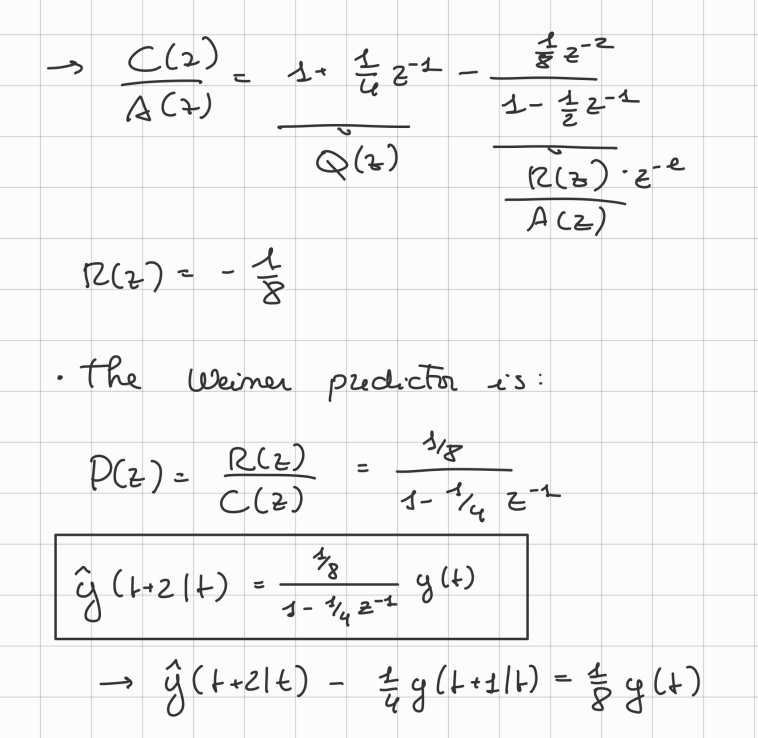 → C(z)/A(z) = 1 + 1/4 z⁻¹ − (1/8 z⁻²)/(1 − 1/2 z⁻¹)
Q(z)   R(z)/A(z) · z⁻ᵉ
R(z) = − 1/8
· The Weiner predictor is:
P(z) = R(z)/C(z) = (1/8)/(1 − 1/4 z⁻¹)
ŷ(t+2|t) = (1/8)/(1 − 1/4 z⁻¹) y(t)
→ ŷ(t+2|t) − 1/4 y(t+1|t) = 1/8 y(t)